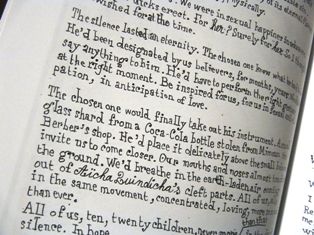 physically.
dicks erect. For her? Surely for her. So I
wished for at the time.
The silence lasted an eternity. The chosen one knew what to
He'd been designated by us believers, for months, years
say anything to him. He'd have to perform the right
at the right moment. Be inspired for us, for us in
pation, in anticipation of love.
The chosen one would finally take out his instrument. A
glass shard from a Coca-Cola bottle stolen from
Berber's shop. He'd place it delicately above the small
invite us to come closer. Our mouths and noses almost
the ground. We'd breathe in the earth-laden air
out of Aïcha Quindicha's cleft parts. All of us, A
in the same movement, concentrated, loving, more
than ever.
All of us, ten, twenty children, never more
silence. In hope